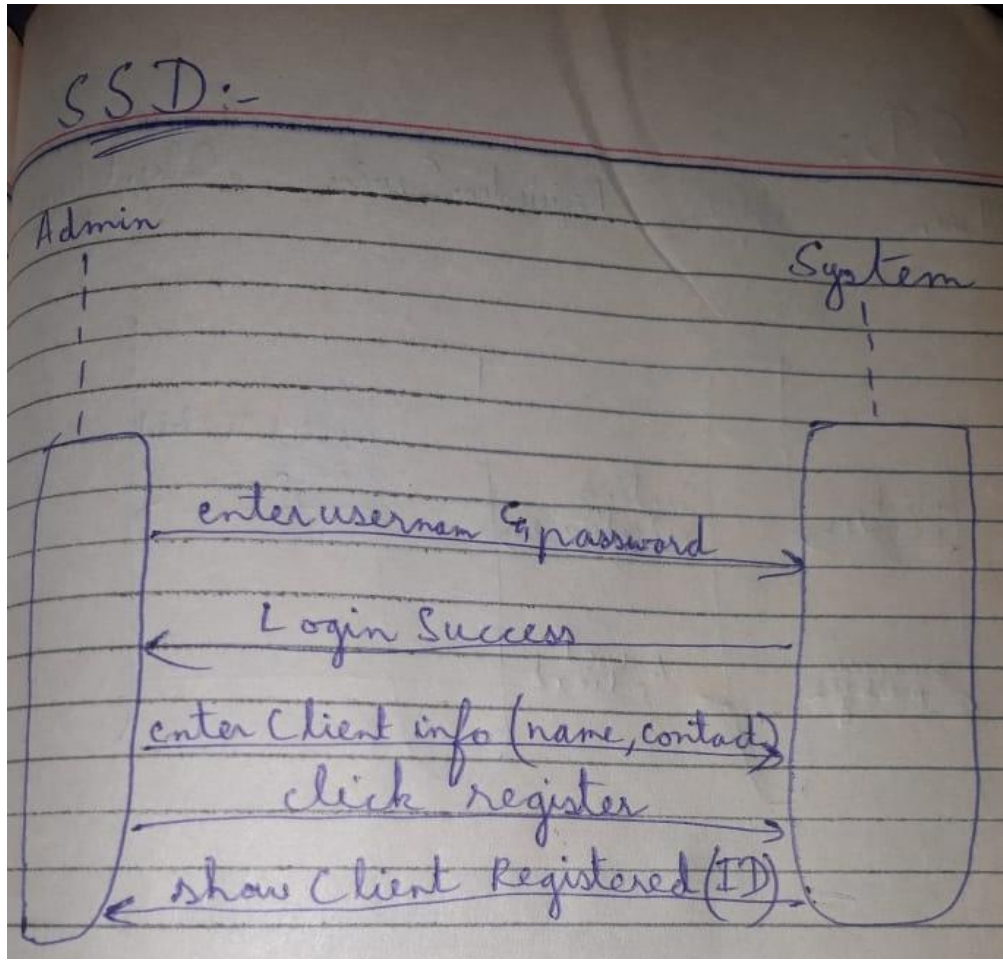 SSD:-
Admin
System
enter usernam & password
Login Success
enter Client info (name, contact)
click register
show Client Registered (ID)